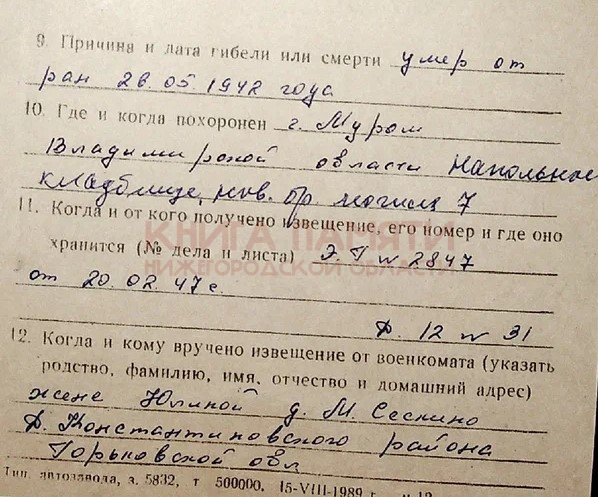 9. Причина и дата гибели или смерти умер от
ран 28.05.1942 года
10. Где и когда похоронен г. Муром
Владимирской области Напольное
кладбище, бр. могила 7
11. Когда и от кого получено извещение, его номер и где оно
хранится (№ дела и листа) Э.Г N 2847
КНИГА ПАМЯТИ
НИЖЕГОРОДСКОЙ ОБЛАСТИ
от 20.02.47 г.
Д. 12 N 31
12. Когда и кому вручено извещение от военкомата (указать
родство, фамилию, имя, отчество и домашний адрес)
жене Юлиной д. М. Сескино
Д. Константиновского района
Горьковской обл
Тип. автозавода, з. 5832, т 500000. 15-VIII-1989 г.